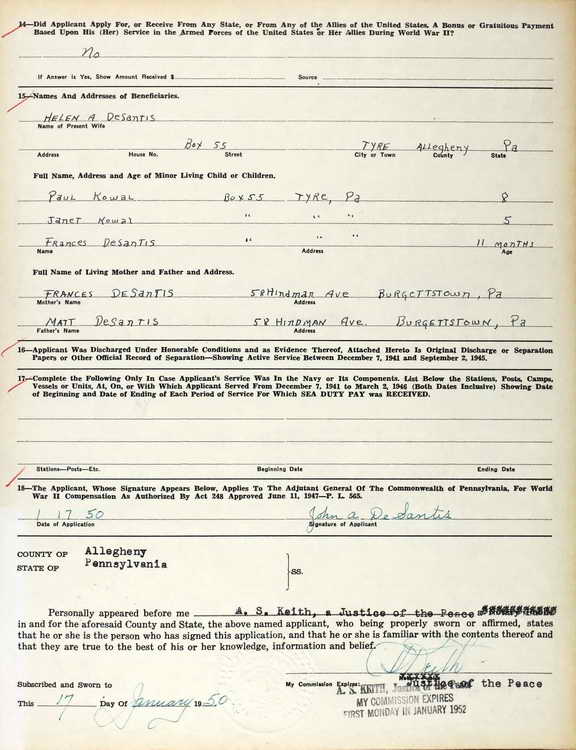 14—Did Applicant Apply For, or Receive From Any State, or From Any of the Allies of the United States. A Bonus or Gratuitous Payment
Based Upon His (Her) Service in the Armed Forces of the United States or Her Allies During World War II?
No
If Answer is Yes, Show Amount Received $ Source
15—Names And Addresses of Beneficiaries.
HELEN A DeSantis
Name of Present Wife
Box 55 TYRE Allegheny Pa
Address House No. Street City or Town County State
Full Name, Address and Age of Minor Living Child or Children.
Paul Kowal Box 55 TYRE, Pa 8
Janet Kowal " " " 5
Frances DeSantis " " " 11 months
Name Address Age
Full Name of Living Mother and Father and Address.
FRANCES DESANTIS 58 Hindman Ave BURGETTSTOWN, Pa
Mother's Name Address
MATT DeSANTIS 58 HINDMAN Ave. BURGETTSTOWN, Pa
Father's Name Address
16—Applicant Was Discharged Under Honorable Conditions and as Evidence Thereof, Attached Hereto Is Original Discharge or Separation
Papers or Other Official Record of Separation—Showing Active Service Between December 7, 1941 and September 2, 1945.
17—Complete the Following Only In Case Applicant's Service Was In the Navy or Its Components. List Below the Stations, Posts, Camps,
Vessels or Units, At, On, or With Which Applicant Served From December 7, 1941 to March 2, 1946 (Both Dates Inclusive) Showing Date
of Beginning and Date of Ending of Each Period of Service For Which SEA DUTY PAY was RECEIVED.
Stations—Posts—Etc. Beginning Date Ending Date
18—The Applicant, Whose Signature Appears Below, Applies To The Adjutant General Of The Commonwealth of Pennsylvania, For World
War II Compensation As Authorized By Act 248 Approved June 11, 1947—P. L. 565.
1 17 50 John A. DeSantis
Date of Application Signature of Applicant
COUNTY OF Allegheny
STATE OF Pennsylvania
ss.
Personally appeared before me A. S. Keith, a Justice of the Peace
in and for the aforesaid County and State, the above named applicant, who being properly sworn or affirmed, states
that he or she is the person who has signed this application, and that he or she is familiar with the contents thereof and
that they are true to the best of his or her knowledge, information and belief.
A S Keith
Subscribed and Sworn to My Commission Expires: Justice of the Peace
A. S. KEITH, Justice of the Peace
This 17 Day Of January 1950
MY COMMISSION EXPIRES
FIRST MONDAY IN JANUARY 1952